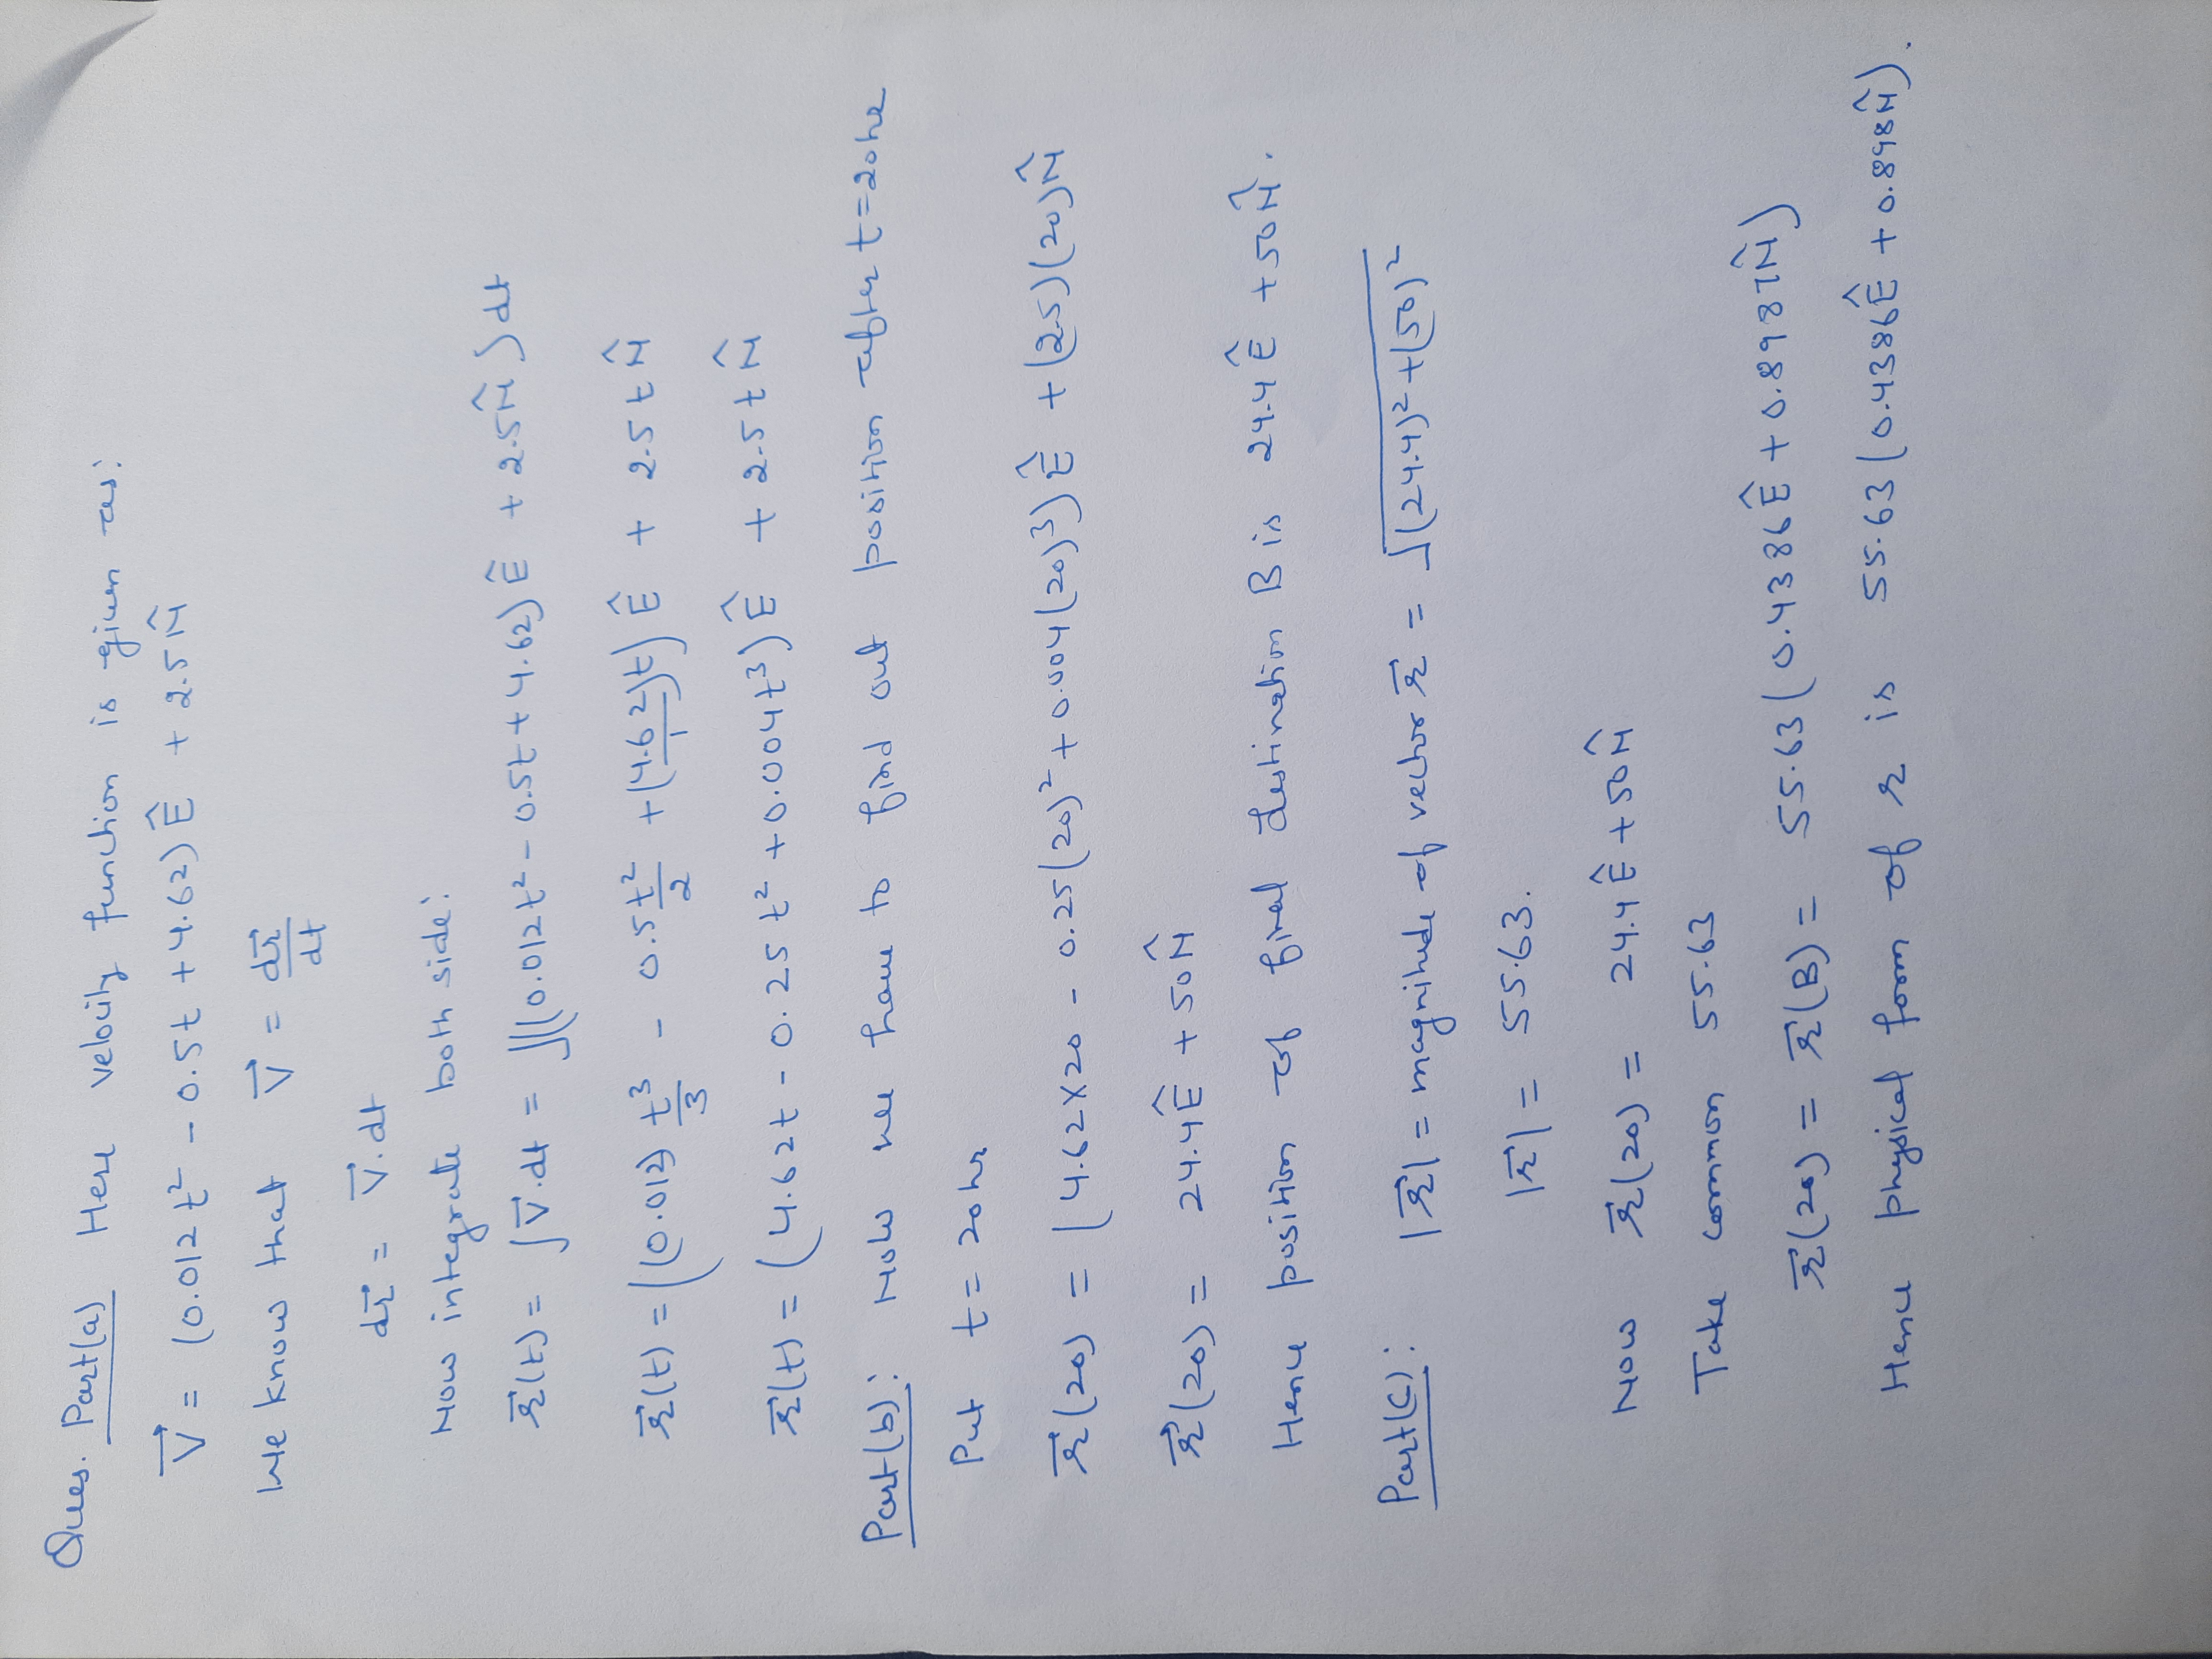 Ques. Part(a) Here velocity function is given as:
V⃗ = (0.012t² - 0.5t + 4.62)Ê + 2.5N̂
We know that V⃗ = dr⃗/dt
dr⃗ = V⃗.dt
Now integrate both side:
r⃗(t) = ∫V⃗.dt = ∫((0.012t² - 0.5t + 4.62)Ê + 2.5N̂)dt
r⃗(t) = ((0.012) t³/3 - 0.5 t²/2 + (4.62)t)Ê + 2.5tN̂
r⃗(t) = (4.62t - 0.25t² + 0.004t³)Ê + 2.5tN̂
Part(b): Now we have to find out position after t=20hr
Put t = 20hr
r⃗(20) = (4.62×20 - 0.25(20)² + 0.004(20)³)Ê + (2.5)(20)N̂
r⃗(20) = 24.4Ê + 50N̂
Hence position of final destination B is 24.4Ê + 50N̂.
Part(c): |r⃗| = magnitude of vector r⃗ = √(24.4)² + (50)²
|r⃗| = 55.63.
Now r⃗(20) = 24.4Ê + 50N̂
Take common 55.63
r⃗(20) = r⃗(B) = 55.63(0.4386Ê + 0.8987N̂)
Hence physical form of r is 55.63(0.4386Ê + 0.898N̂).